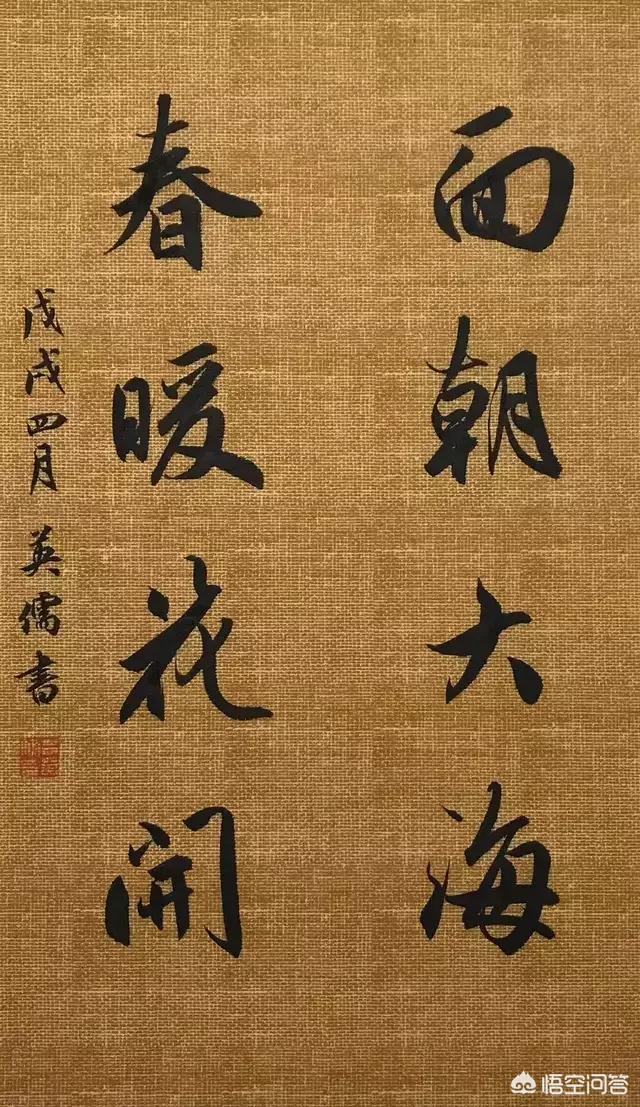 面朝大海
春暖花開
戊戌四月英儒書
悟空问答